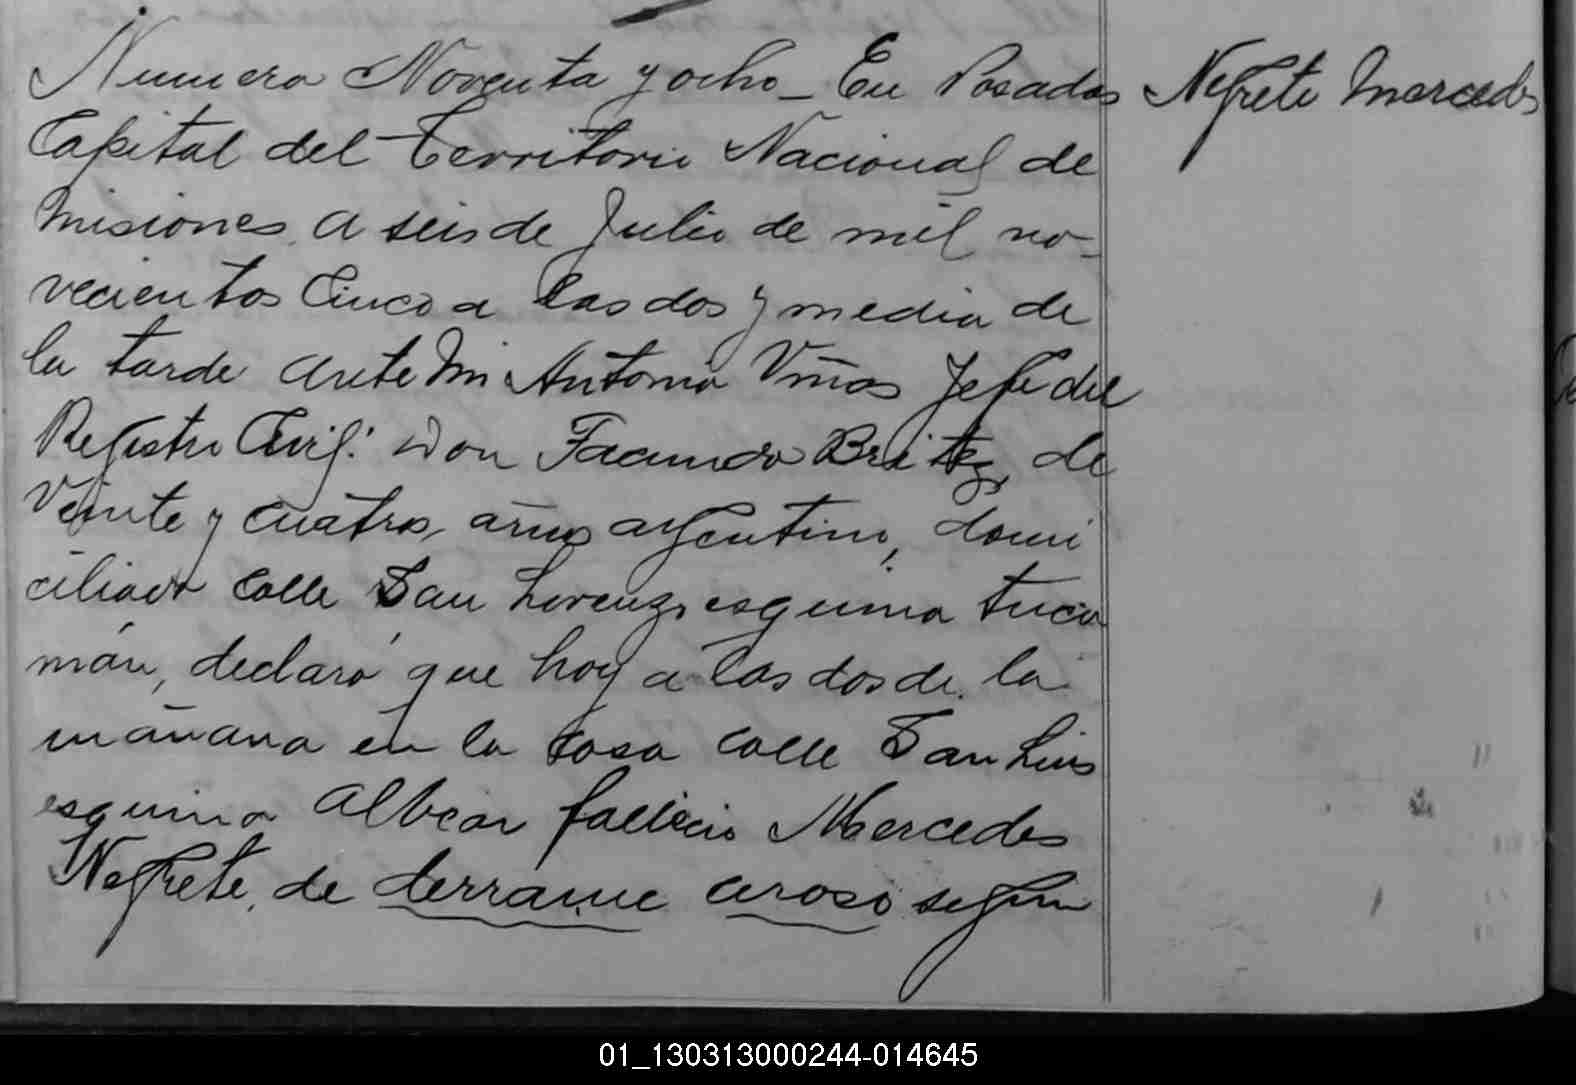 Numero Noventa y ocho_ En Posadas
Negrete Mercedes
Capital del Territorio Nacional de
Misiones, a seis de Julio de mil no-
vecientos Cinco a las dos y media de
la tarde ante Mi Antonio Viñas Jefe del
Registro Civil: Don Facundo Britez, de
veinte y cuatro, años argentino, domi
ciliado Calle San Lorenzo esquina tucu
mán, declaró que hoy a las dos de la
mañana en la casa calle San Luis
esquina Alvear fallecio Mercedes
Negrete, de derrame ceroso según
01_130313000244-014645